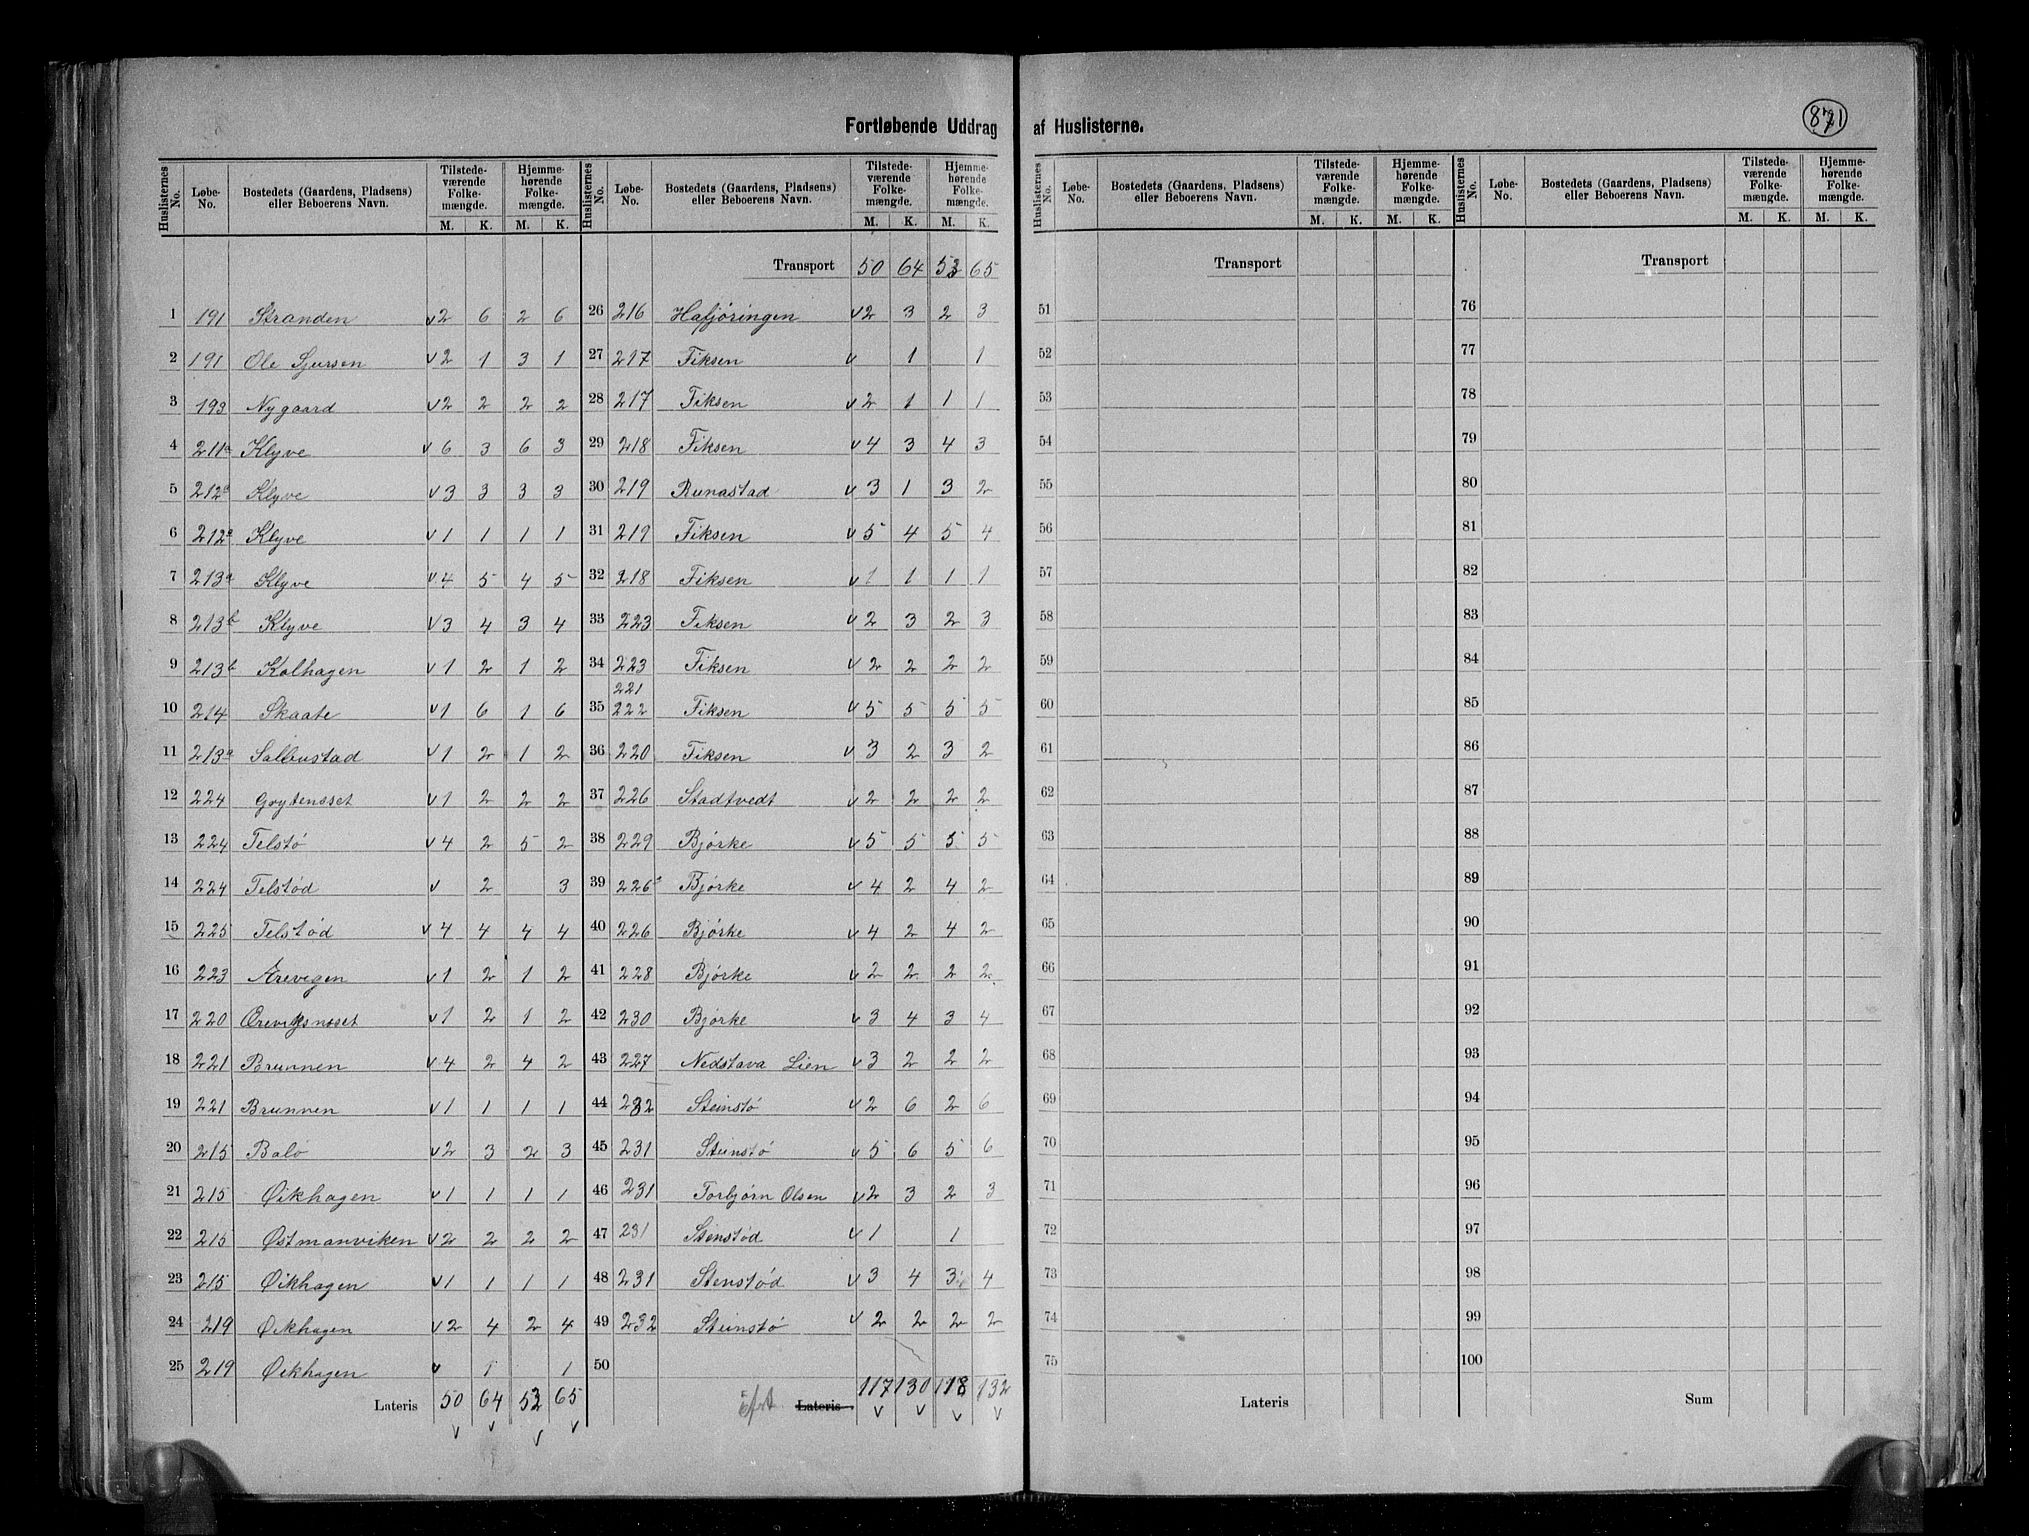 871
Fortløbende Uddrag af Huslisterne.
Huslisternes No. Løbe-No. Bostedets (Gaardens, Pladsens) eller Beboerens Navn. Tilstedeværende Folkemængde. M. K. Hjemmehørende Folkemængde. M. K.
1 191 Stranden v 2 6 2 6
2 191 Ole Sjursen v 2 1 3 1
3 193 Nygaard v 2 2 2 2
4 211a Klyve v 6 3 6 3
5 212a Klyve v 3 3 3 3
6 212a Klyve v 1 1 1 1
7 213a Klyve v 4 5 4 5
8 213b Klyve v 3 4 3 4
9 213b Kolhagen v 1 2 1 2
10 214 Skaate v 1 6 1 6
11 213a Salbustad v 1 2 1 2
12 224 Grytenesset v 1 2 2 2
13 224 Telstø v 4 2 5 2
14 224 Telstød v 2 3
15 225 Telstød v 4 4 4 4
16 223 Ærevigen v 1 2 1 2
17 220 Øreviksneset v 1 2 1 2
18 221 Brunnen v 4 2 4 2
19 221 Brunnen v 1 1 1 1
20 215 Balø v 2 3 2 3
21 215 Øikhagen v 1 1 1 1
22 215 Østmanviken v 2 2 2 2
23 215 Øikhagen v 1 1 1 1
24 219 Øikhagen v 2 4 2 4
25 219 Øikhagen v 1 1
Lateris 50 64 53 65
v v v v
Huslisternes No. Løbe-No. Bostedets (Gaardens, Pladsens) eller Beboerens Navn. Tilstedeværende Folkemængde. M. K. Hjemmehørende Folkemængde. M. K.
Transport 50 64 53 65
26 216 Hafjøringen v 2 3 2 3
27 217 Fiksen v 1 1
28 217 Fiksen v 2 1 1 1
29 218 Fiksen v 4 3 4 3
30 219 Runastad v 3 1 3 2
31 219 Fiksen v 5 4 5 4
32 218 Fiksen v 1 1 1 1
33 223 Fiksen v 2 3 2 3
34 223 Fiksen v 2 2 2 2
221
35 222 Fiksen v 5 5 5 5
36 220 Fiksen v 3 2 3 2
37 226 Stadtvedt v 2 2 2 2
38 229 Bjørke v 5 5 5 5
39 226 Bjørke v 4 2 4 2
40 226 Bjørke v 4 2 4 2
41 228 Bjørke v 2 2 2 2
42 230 Bjørke v 3 4 3 4
43 227 Nedstava Lien v 3 2 2 2
44 232 Steinstø v 2 6 2 6
45 231 Steinstø v 5 6 5 6
46 231 Torbjørn Olsen v 2 3 2 3
47 231 Stenstød v 1 1
48 231 Stenstød v 3 4 3 4
49 232 Steinstø v 2 2 2 2
50
Lateris 117 130 118 132
v v v v
Huslisternes No. Løbe-No. Bostedets (Gaardens, Pladsens) eller Beboerens Navn. Tilstedeværende Folkemængde. M. K. Hjemmehørende Folkemængde. M. K.
Transport
51
52
53
54
55
56
57
58
59
60
61
62
63
64
65
66
67
68
69
70
71
72
73
74
75
Lateris
Huslisternes No. Løbe-No. Bostedets (Gaardens, Pladsens) eller Beboerens Navn. Tilstedeværende Folkemængde. M. K. Hjemmehørende Folkemængde. M. K.
Transport
76
77
78
79
80
81
82
83
84
85
86
87
88
89
90
91
92
93
94
95
96
97
98
99
100
Sum